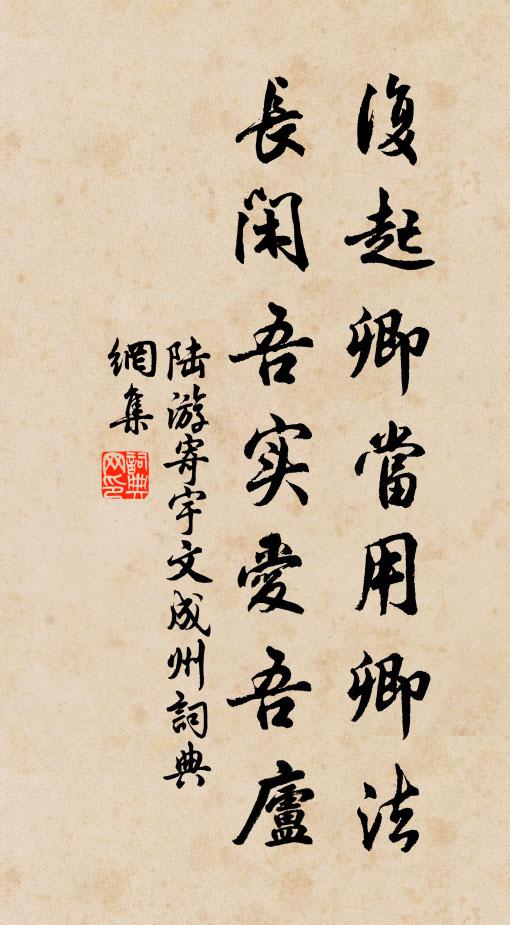 復起卿當用卿法
長閑吾实愛吾廬
陆游寄宇文成州詞典
網集
詞典網印